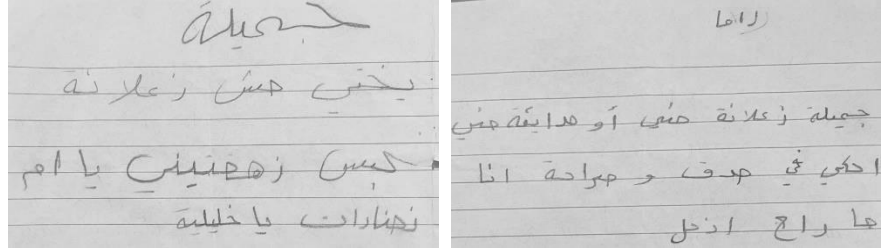 جميلة
يختي مش زعلانة
بس زهقتيني يا ام
نضارات يا خليلية
راما
جميلة زعلانة مني أو مدايقة مني
احكي في صدق و صراحة انا
ما راح ازعل